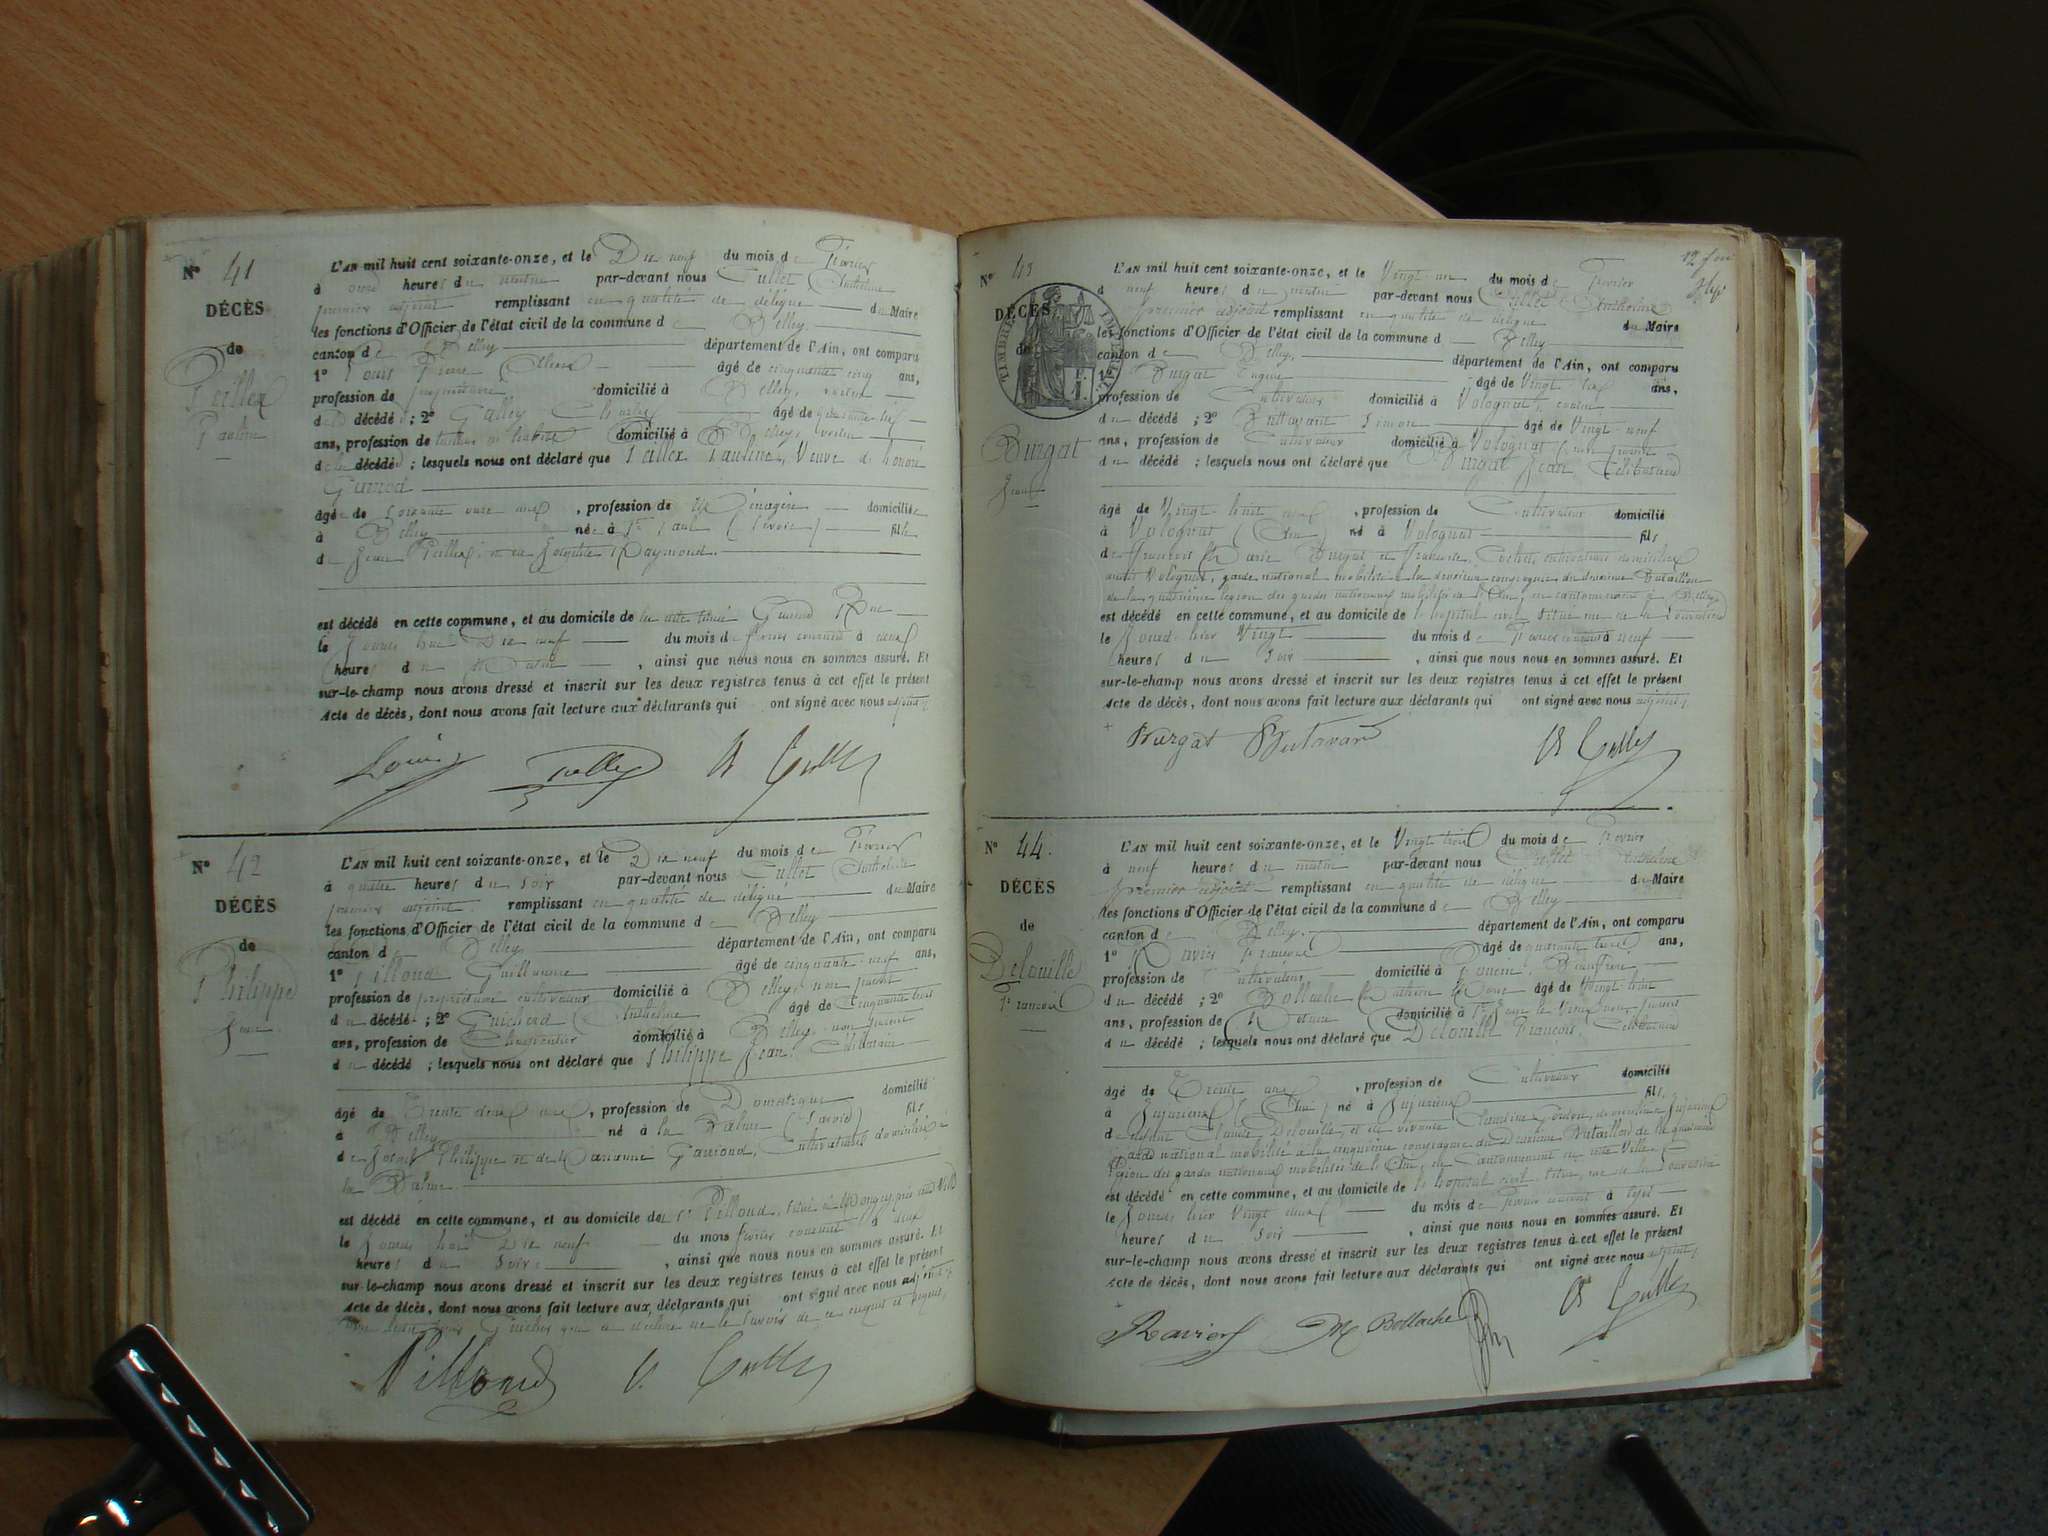 N° 41
DÉCÈS
de
Pauline
L'AN mil huit cent soixante-onze, et le Dix neuf du mois de Février
à onze heures du matin par-devant nous Cullet Anthelme
premier adjoint remplissant en qualité de délégué du Maire
les fonctions d'Officier de l'état civil de la commune de Belley
canton de Belley département de l'Ain, ont comparu
1° Louis Pierre âgé de cinquante cinq ans,
profession de propriétaire domicilié à Belley, voisin
décédé ; 2° Galley Charles âgé de
ans, profession de domicilié à Belley, voisin
de la décédée ; lesquels nous ont déclaré que Pauline, Veuve de honoré
âgée de soixante onze ans, profession de Ménagère domiciliée
à Belley née à St Paul (Savoie) fille
de Jean et de Josephte Raymond.
est décédée en cette commune, et au domicile de Grand Rue
le Jourd'hui Dix neuf du mois de février courant à deux
heures du Matin, ainsi que nous nous en sommes assuré. Et
sur-le-champ nous avons dressé et inscrit sur les deux registres tenus à cet effet le présent
Acte de décès, dont nous avons fait lecture aux déclarants qui ont signé avec nous adjoint
Louis Galley A Cullet
N° 42
DÉCÈS
de
Philippe
Jean
L'AN mil huit cent soixante-onze, et le Dix neuf du mois de Février
à quatre heures du soir par-devant nous Cullet Anthelme
premier adjoint remplissant en qualité de délégué du Maire
les fonctions d'Officier de l'état civil de la commune de Belley
canton de Belley département de l'Ain, ont comparu
1° Pilloud Guillaume âgé de cinquante neuf ans,
profession de propriétaire cultivateur domicilié à Belley, non parent
du décédé ; 2° Guicherd Anthelme âgé de cinquante trois
ans, profession de Charpentier domicilié à Belley, non parent
du décédé ; lesquels nous ont déclaré que Philippe Jean, Célibataire
âgé de Trente deux ans, profession de Domestique domicilié
à Belley né à la Balme (Savoie) fils
de Joseph Philippe et de Marianne, Cultivateurs domiciliés à
la Balme.
est décédé en cette commune, et au domicile de Sr Pilloud, situé à
le Jourd'hui Dix neuf du mois février courant à deux
heures du Soir, ainsi que nous nous en sommes assuré. Et
sur-le-champ nous avons dressé et inscrit sur les deux registres tenus à cet effet le présent
Acte de décès, dont nous avons fait lecture aux déclarants qui ont signé avec nous adjoint
Pilloud A. Cullet
N° 43
TIMBRE IMPÉRIAL
DÉCÈS
de
Burgat
Jean
L'AN mil huit cent soixante-onze, et le Vingt un du mois de Février
à neuf heures du matin par-devant nous Cullet Anthelme
premier adjoint remplissant en qualité de délégué du Maire
les fonctions d'Officier de l'état civil de la commune de Belley
canton de Belley, département de l'Ain, ont comparu
1° Burgat Eugène âgé de Vingt six ans,
profession de Cultivateur domicilié à Volognat, cousin
du décédé ; 2° Buttavant Simon âgé de Vingt neuf
ans, profession de Cultivateur domicilié à Volognat
du décédé ; lesquels nous ont déclaré que Burgat Jean Célibataire
âgé de Vingt huit ans, profession de Cultivateur domicilié
à Volognat (Ain) né à Volognat fils
de François Marie Burgat et Françoise, cultivateurs domiciliés
audit Volognat, garde national mobilisé à la deuxième compagnie du deuxième Bataillon
de la quatrième légion des gardes nationaux mobilisés de l'Ain, en cantonnement à Belley
est décédé en cette commune, et au domicile de l'hopital civil situé rue de la
le Jourd hier Vingt du mois de Février courant à neuf
heures du Soir, ainsi que nous nous en sommes assuré. Et
sur-le-champ nous avons dressé et inscrit sur les deux registres tenus à cet effet le présent
Acte de décès, dont nous avons fait lecture aux déclarants qui ont signé avec nous adjoint
Burgat Butavant A Cullet
N° 44
DÉCÈS
de
Delouille
François
L'AN mil huit cent soixante-onze, et le Vingt trois du mois de Février
à neuf heures du matin par-devant nous Cullet Anthelme
premier adjoint remplissant en qualité de délégué du Maire
les fonctions d'Officier de l'état civil de la commune de Belley
canton de Belley. département de l'Ain, ont comparu
1° Ravier François âgé de quarante trois ans,
profession de Cultivateur domicilié à Poncin,
du décédé ; 2° Bollache Mathieu âgé de Vingt huit
ans, profession de Notaire domicilié à St Jean le Vieux, non parent
du décédé ; lesquels nous ont déclaré que Delouille François, Célibataire
âgé de Trente ans, profession de Cultivateur domicilié
à Jujurieux (Ain) né à Jujurieux fils
de défunt Claude Delouille, et de vivante Claudine, domiciliée à Jujurieux
garde national mobilisé à la cinquième compagnie du Deuxième Bataillon de la quatrième
légion des gardes nationaux mobilisés de l'Ain, de Cantonnement en cette Ville.
est décédé en cette commune, et au domicile de l'hopital civil situé, rue de la
le Jourd hier Vingt deux du mois de février courant à sept
heures du Soir, ainsi que nous nous en sommes assuré. Et
sur-le-champ nous avons dressé et inscrit sur les deux registres tenus à cet effet le présent
Acte de décès, dont nous avons fait lecture aux déclarants qui ont signé avec nous adjoint
Ravier M Bollache A Cullet